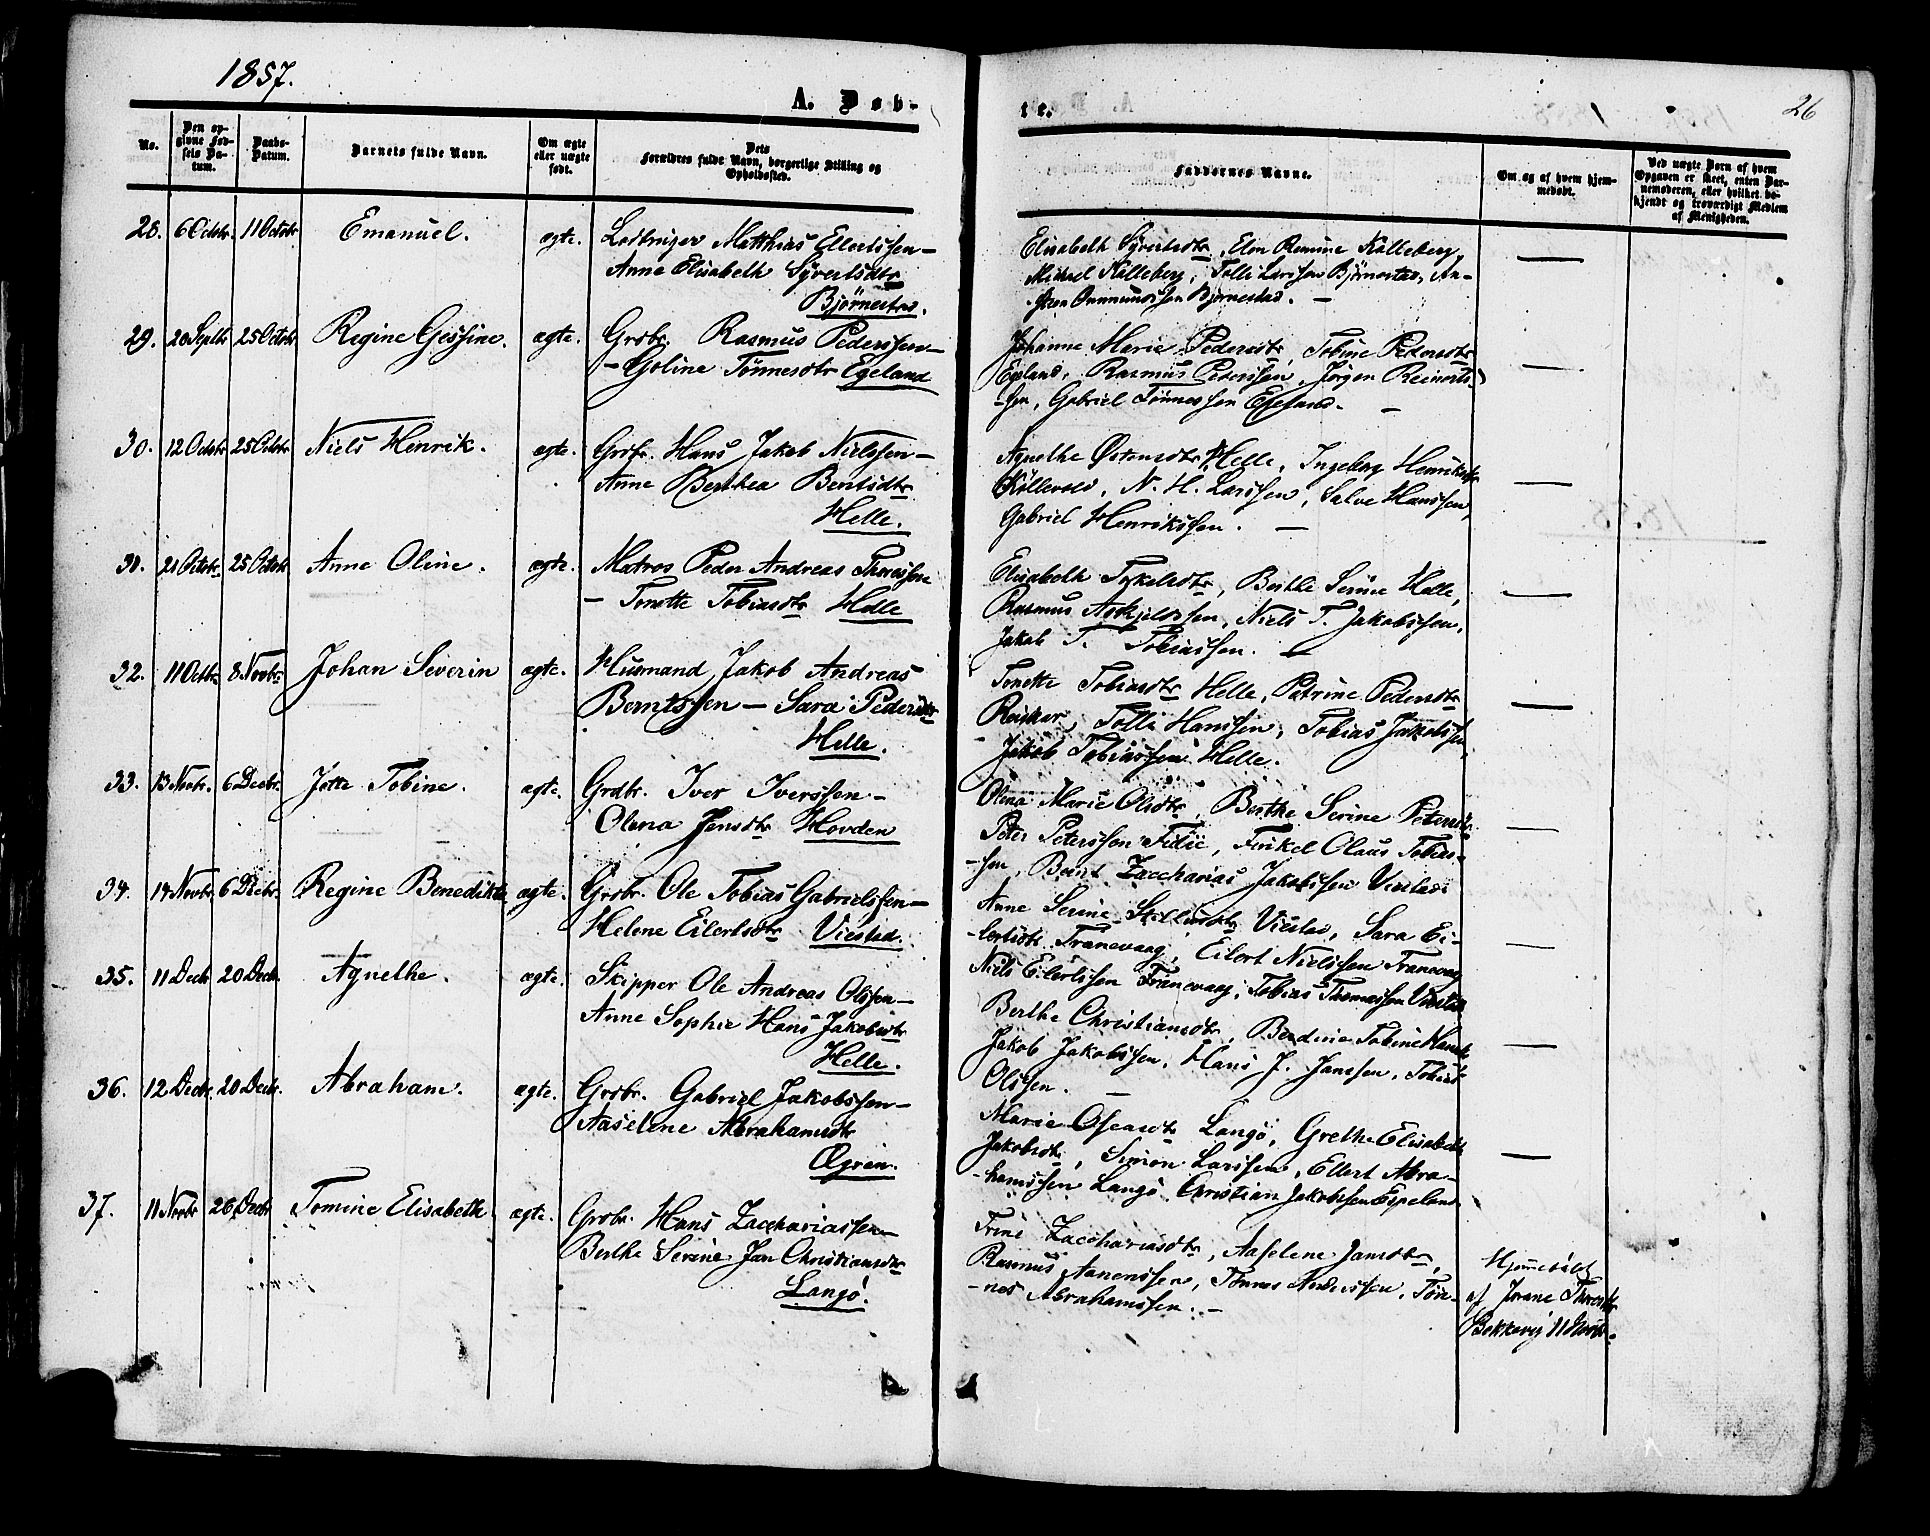 1857.
A. Døb-
te.
26
No.
Den opgivne Fødsels Datum.
Daabs-Datum.
Barnets fulde Navn.
Om ægte eller uægte født.
Dets Forældres fulde Navn, borgerlige Stilling og Opholdssted.
Faddernes Navne.
Om og af hvem hjemmedøbt.
Ved uægte Barn af hvem Opgaven er skeet, enten Barnemoderen, eller hvilket bekjendt og troværdigt Medlem af Menigheden.
28. 6 Octbr. 11 Octobr Emanuel. ægte. Lodtsriger Matthias Ellertssen —
Anne Elisabeth Syvertsdtr
Bjørnestad.
Elisabeth Syvertsdtr, Elen Kalleberg,
Mikael Kalleberg, Tolli Larssen Bjørnestad,
Gunmundssen Bjørnestad. —
29. 20 Septbr 25 Octobr Regine Gessine. ægte. Grdbr. Rasmus Pederssen —
— Goline Tønnesdtr Egeland
Johanne Marie Pedersdtr, Tobine Pedersdtr
Egeland, Rasmus Peterssen, Jørgen Reinerts-
-sen, Gabriel Tønnessen Egeland. —
30. 12 Octobr 25 Octobr Niels Henrik. ægte. Grdbr. Hans Jakob Nielssen —
Anne Berthea Berntsdtr
Helle.
Agnethe Østensdtr Helle, Ingeborg Henriksdtr
Kollevold, N. H. Larssen, Salve Hanssen,
Gabriel Henrikssen. —
31. 21 Octobr. 25 Octobr Anne Oline. ægte. Matros Peder Andreas Thorsssen
— Tonette Tobiasdtr Helle
Elisabeth Terkelsdtr, Berthe Serine Helle,
Rasmus Askjeldssen, Niels T. Jakobssen,
Jakob T. Tobiassen. —
32. 11 Octbr 8 Novbr. Johan Severin ægte. Husmand Jakob Andreas
Berntssen — Sara Pedersdtr
Helle.
Tonette Tobiasdtr Helle, Patrine Pedersdtr
Tolli Hanssen, Tobias Jakobssen,
Jakob Tobiassen Helle.
33. 13 Novbr. 6 Decbr. Jette Tobine. ægte. Grdbr. Iver Iverssen —
Olena Jensdtr Hovden
Olena Marie Olsdtr, Berthe Serine Petersdtr
Peter Peterssen Fidie, Terkel Olaus Tobias-
-sen, Bernt Zaccharias Jakobssen Viestad
34. 14 Novbr. 6 Decbr. Regine Benedikte ægte. Grdbr. Ole Tobias Gabrielssen —
Helene Eilertsdtr Viestad.
Anne Serine Viestad, Sara Ei-
-lertsdtr Tranevaag, Eilert Nielssen Tranevaag
Niels Eilertssen Tranevaag, Tobias Thomassen Viestad
35. 11 Decbr 20 Decbr. Agnethe. ægte. Skipper Ole Andreas Olssen —
Anne Sophie Hans Jakobsdtr
Helle.
Berthe Christiansdtr, Berdine Tobine Hansdtr
Jakob Jakobssen, Hans J. Janssen, Tobias
Olssen. —
36. 12 Decbr. 20 Decbr. Abraham. ægte. Grdbr. Gabriel Jakobssen —
Aaselene Abrahamsdtr
Øgrein.
Marie Langø, Grethe Elisabeth
Jakobsdtr, Simon Larssen, Ellert Abra-
-hamssen Langø, Christian Jakobssen Espeland
37. 11 Novbr 26 Decbr Tomine Elisabeth ægte. Grdbr. Hans Zacchariassen —
Berthe Serine Jan Christiansdtr
Langø.
Trine Zacchariasdtr, Aaselene Jansdtr,
Rasmus Aanenssen, Tønnes Anderssen, Tøn-
-nes Abrahamssen. —
Hjemmedøbt
af Jorane Thorsdtr
Bekkevig 11 Novbr.